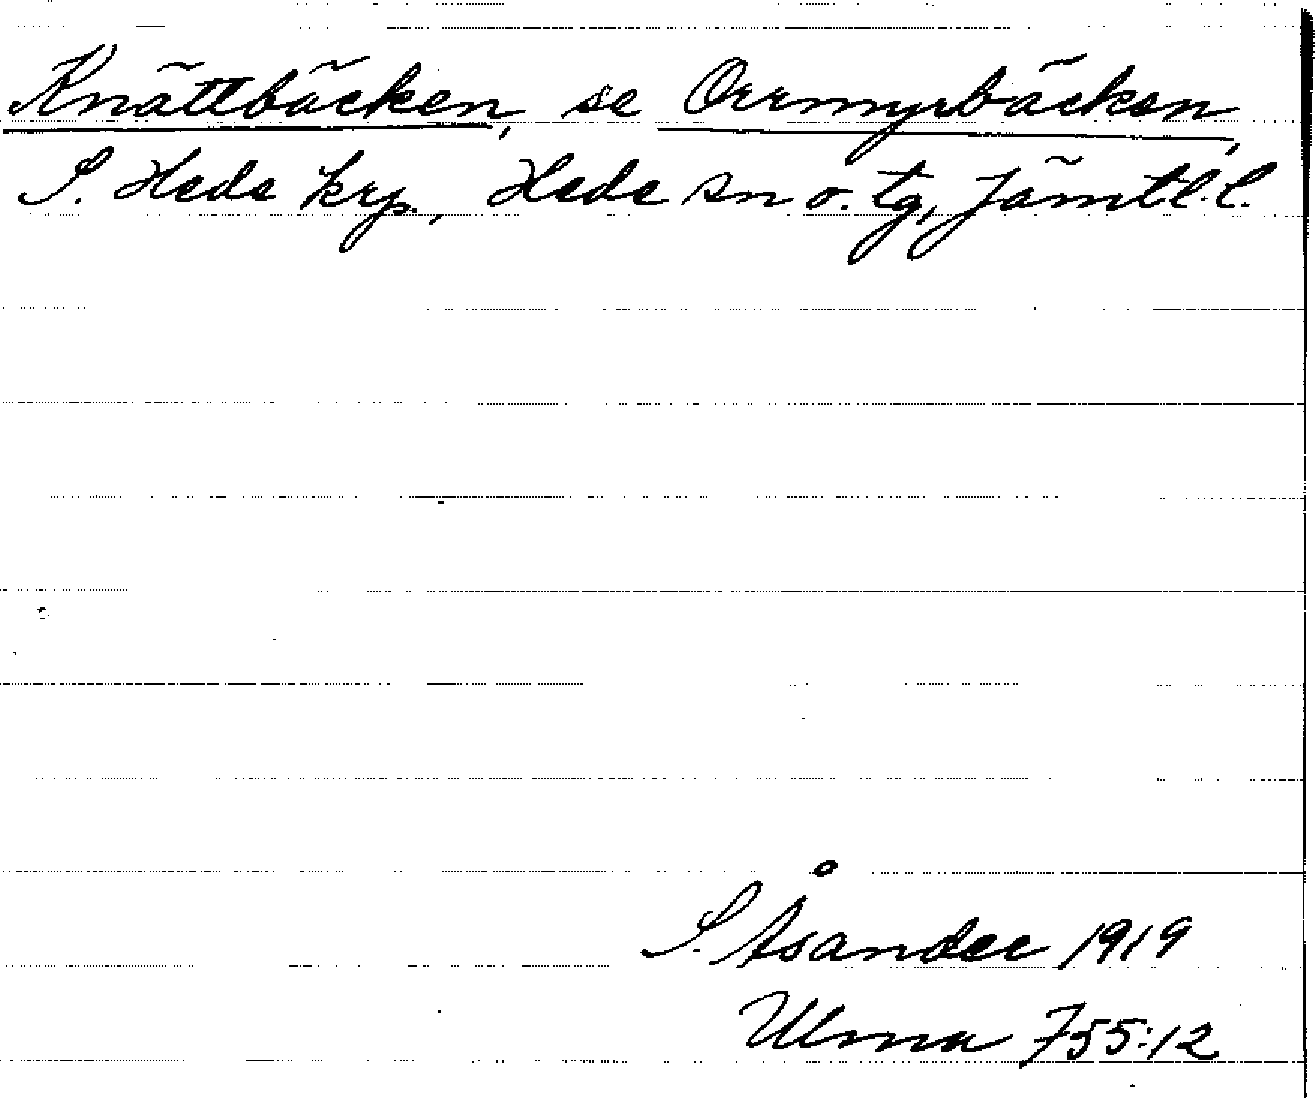 Knättbäcken, se Orrmyrbäcken,
S. Heds krp., Hede sn o. tg, Jämtl.l.
S. Åsander 1919
Ulma 755:12